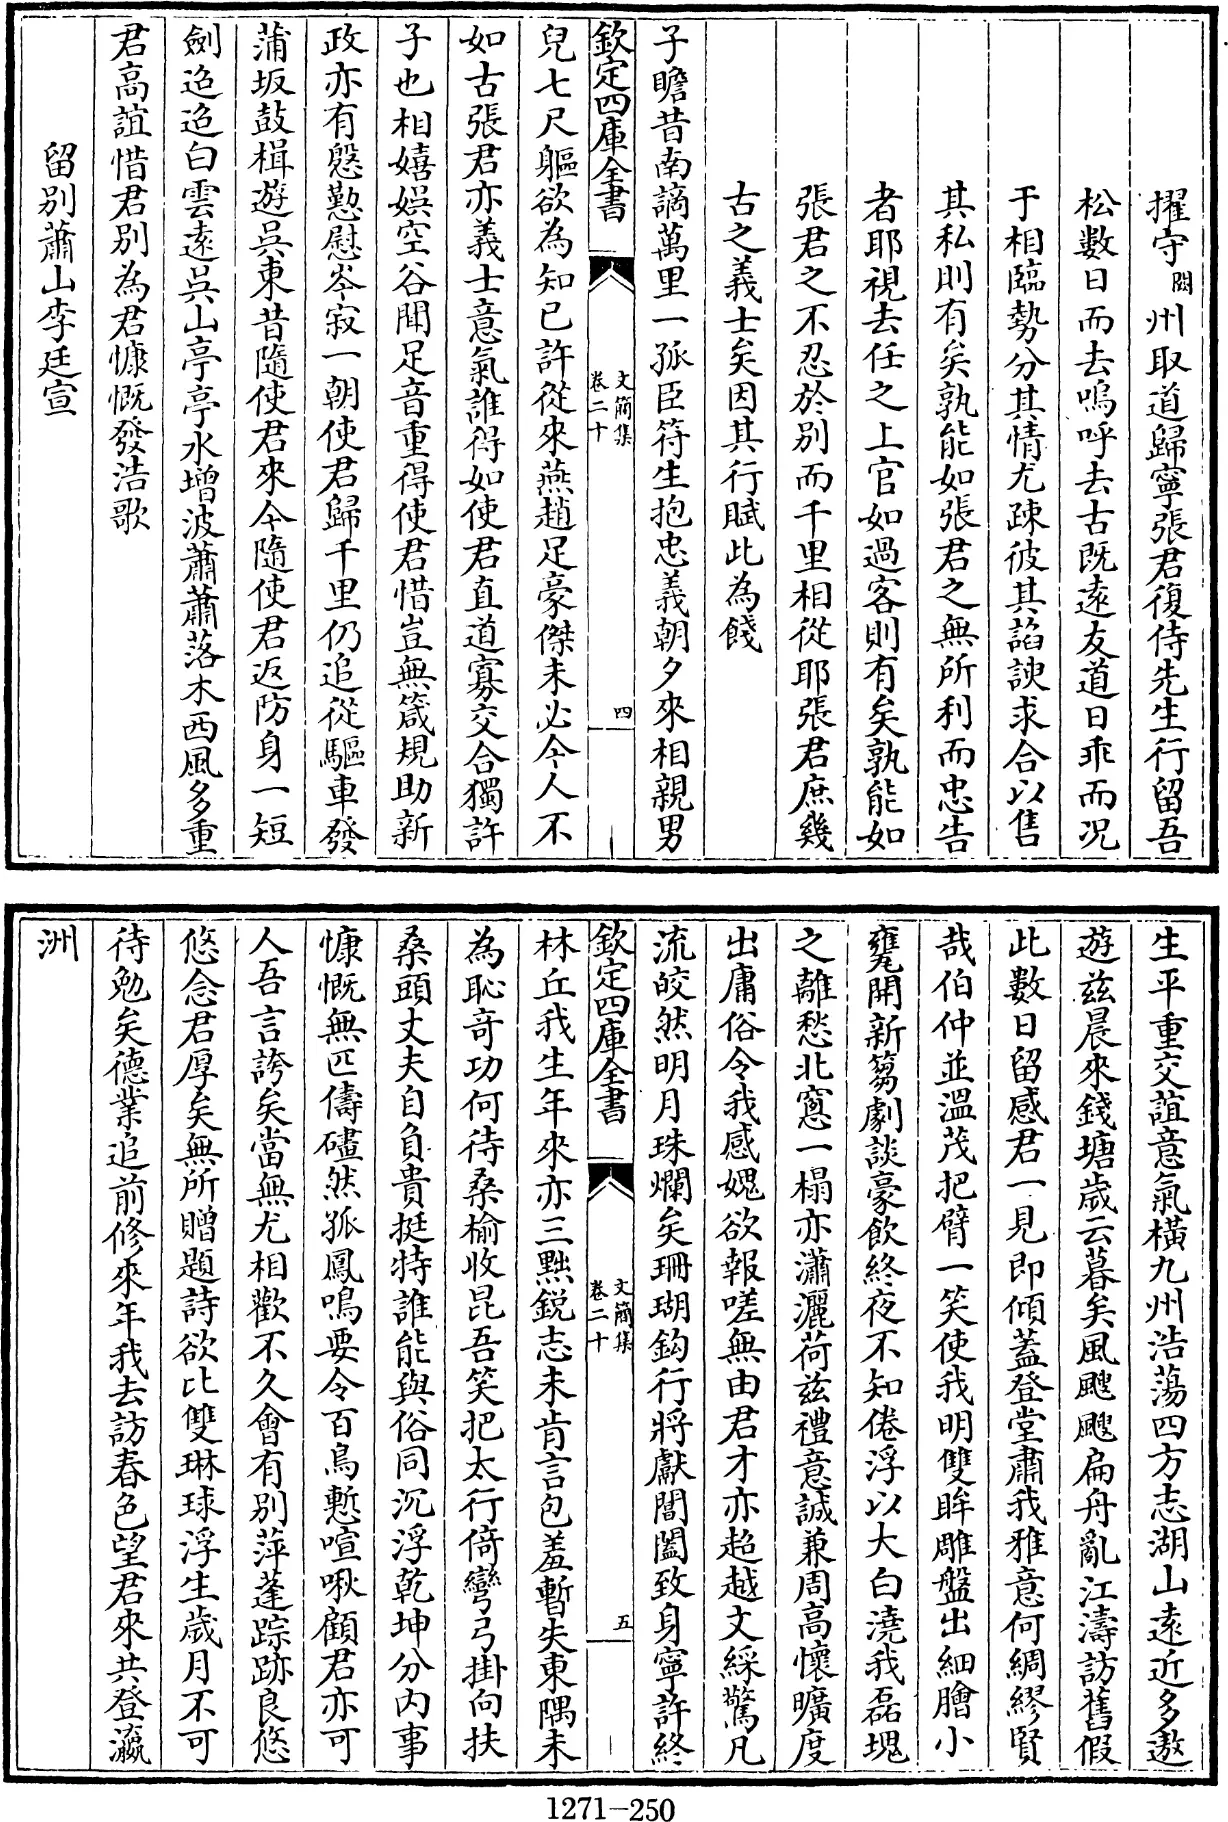 擢守闕州取道歸寧張君復侍先生行留吾
松數日而去嗚呼去古既逺友道日乖而况
于相臨勢分其情尤疎彼其諂諛求合以售
其私則有矣孰能如張君之無所利而忠告
者耶視去任之上官如過客則有矣孰能如
張君之不忍於别而千里相從耶張君庶幾
古之義士矣因其行賦此為餞
子瞻昔南謫萬里一孤臣符生抱忠義朝夕來相親男
欽定四庫全書
文簡集
卷二十
四
兒七尺軀欲為知己許從來燕趙足豪傑未必今人不
如古張君亦義士意氣誰得如使君直道寡交合獨許
子也相嬉娱空谷聞足音重得使君惜豈無箴規助新
政亦有慇懃慰岑寂一朝使君歸千里仍追從驅車發
蒲坂鼓楫遊吳東昔隨使君來今隨使君返防身一短
劍迢迢白雲逺吳山亭亭水增波蕭蕭落木西風多重
君高誼惜君别為君慷慨發浩歌
留别蕭山李廷宣
生平重交誼意氣橫九州浩蕩四方志湖山逺近多遨
遊兹晨來錢塘歲云暮矣風颼颼扁舟亂江濤訪舊假
此數日留感君一見即傾蓋登堂肅我雅意何綢繆賢
哉伯仲並溫茂把臂一笑使我明雙眸雕盤出細膾小
甕開新篘劇談豪飲終夜不知倦浮以大白澆我磊塊
之離愁北窻一榻亦瀟灑荷兹禮意誠兼周高懷曠度
出庸俗令我感媿欲報嗟無由君才亦超越文綵驚凡
流皎然明月珠爛矣珊瑚鈎行將獻閶闔致身寧許終
欽定四庫全書
文簡集
卷二十
五
林丘我生年來亦三黜鋭志未肯言包羞暫失東隅未
為恥竒功何待桑榆收昆吾笑把太行倚彎弓掛向扶
桑頭丈夫自負貴挺特誰能與俗同沉浮乾坤分内事
慷慨無匹儔礚然孤鳳鳴要令百鳥慙喧啾顧君亦可
人吾言誇矣當無尤相歡不久會有别萍蓬踪跡良悠
悠念君厚矣無所贈題詩欲比雙琳球浮生歲月不可
待勉矣德業追前修來年我去訪春色望君來共登瀛
洲
1271-250